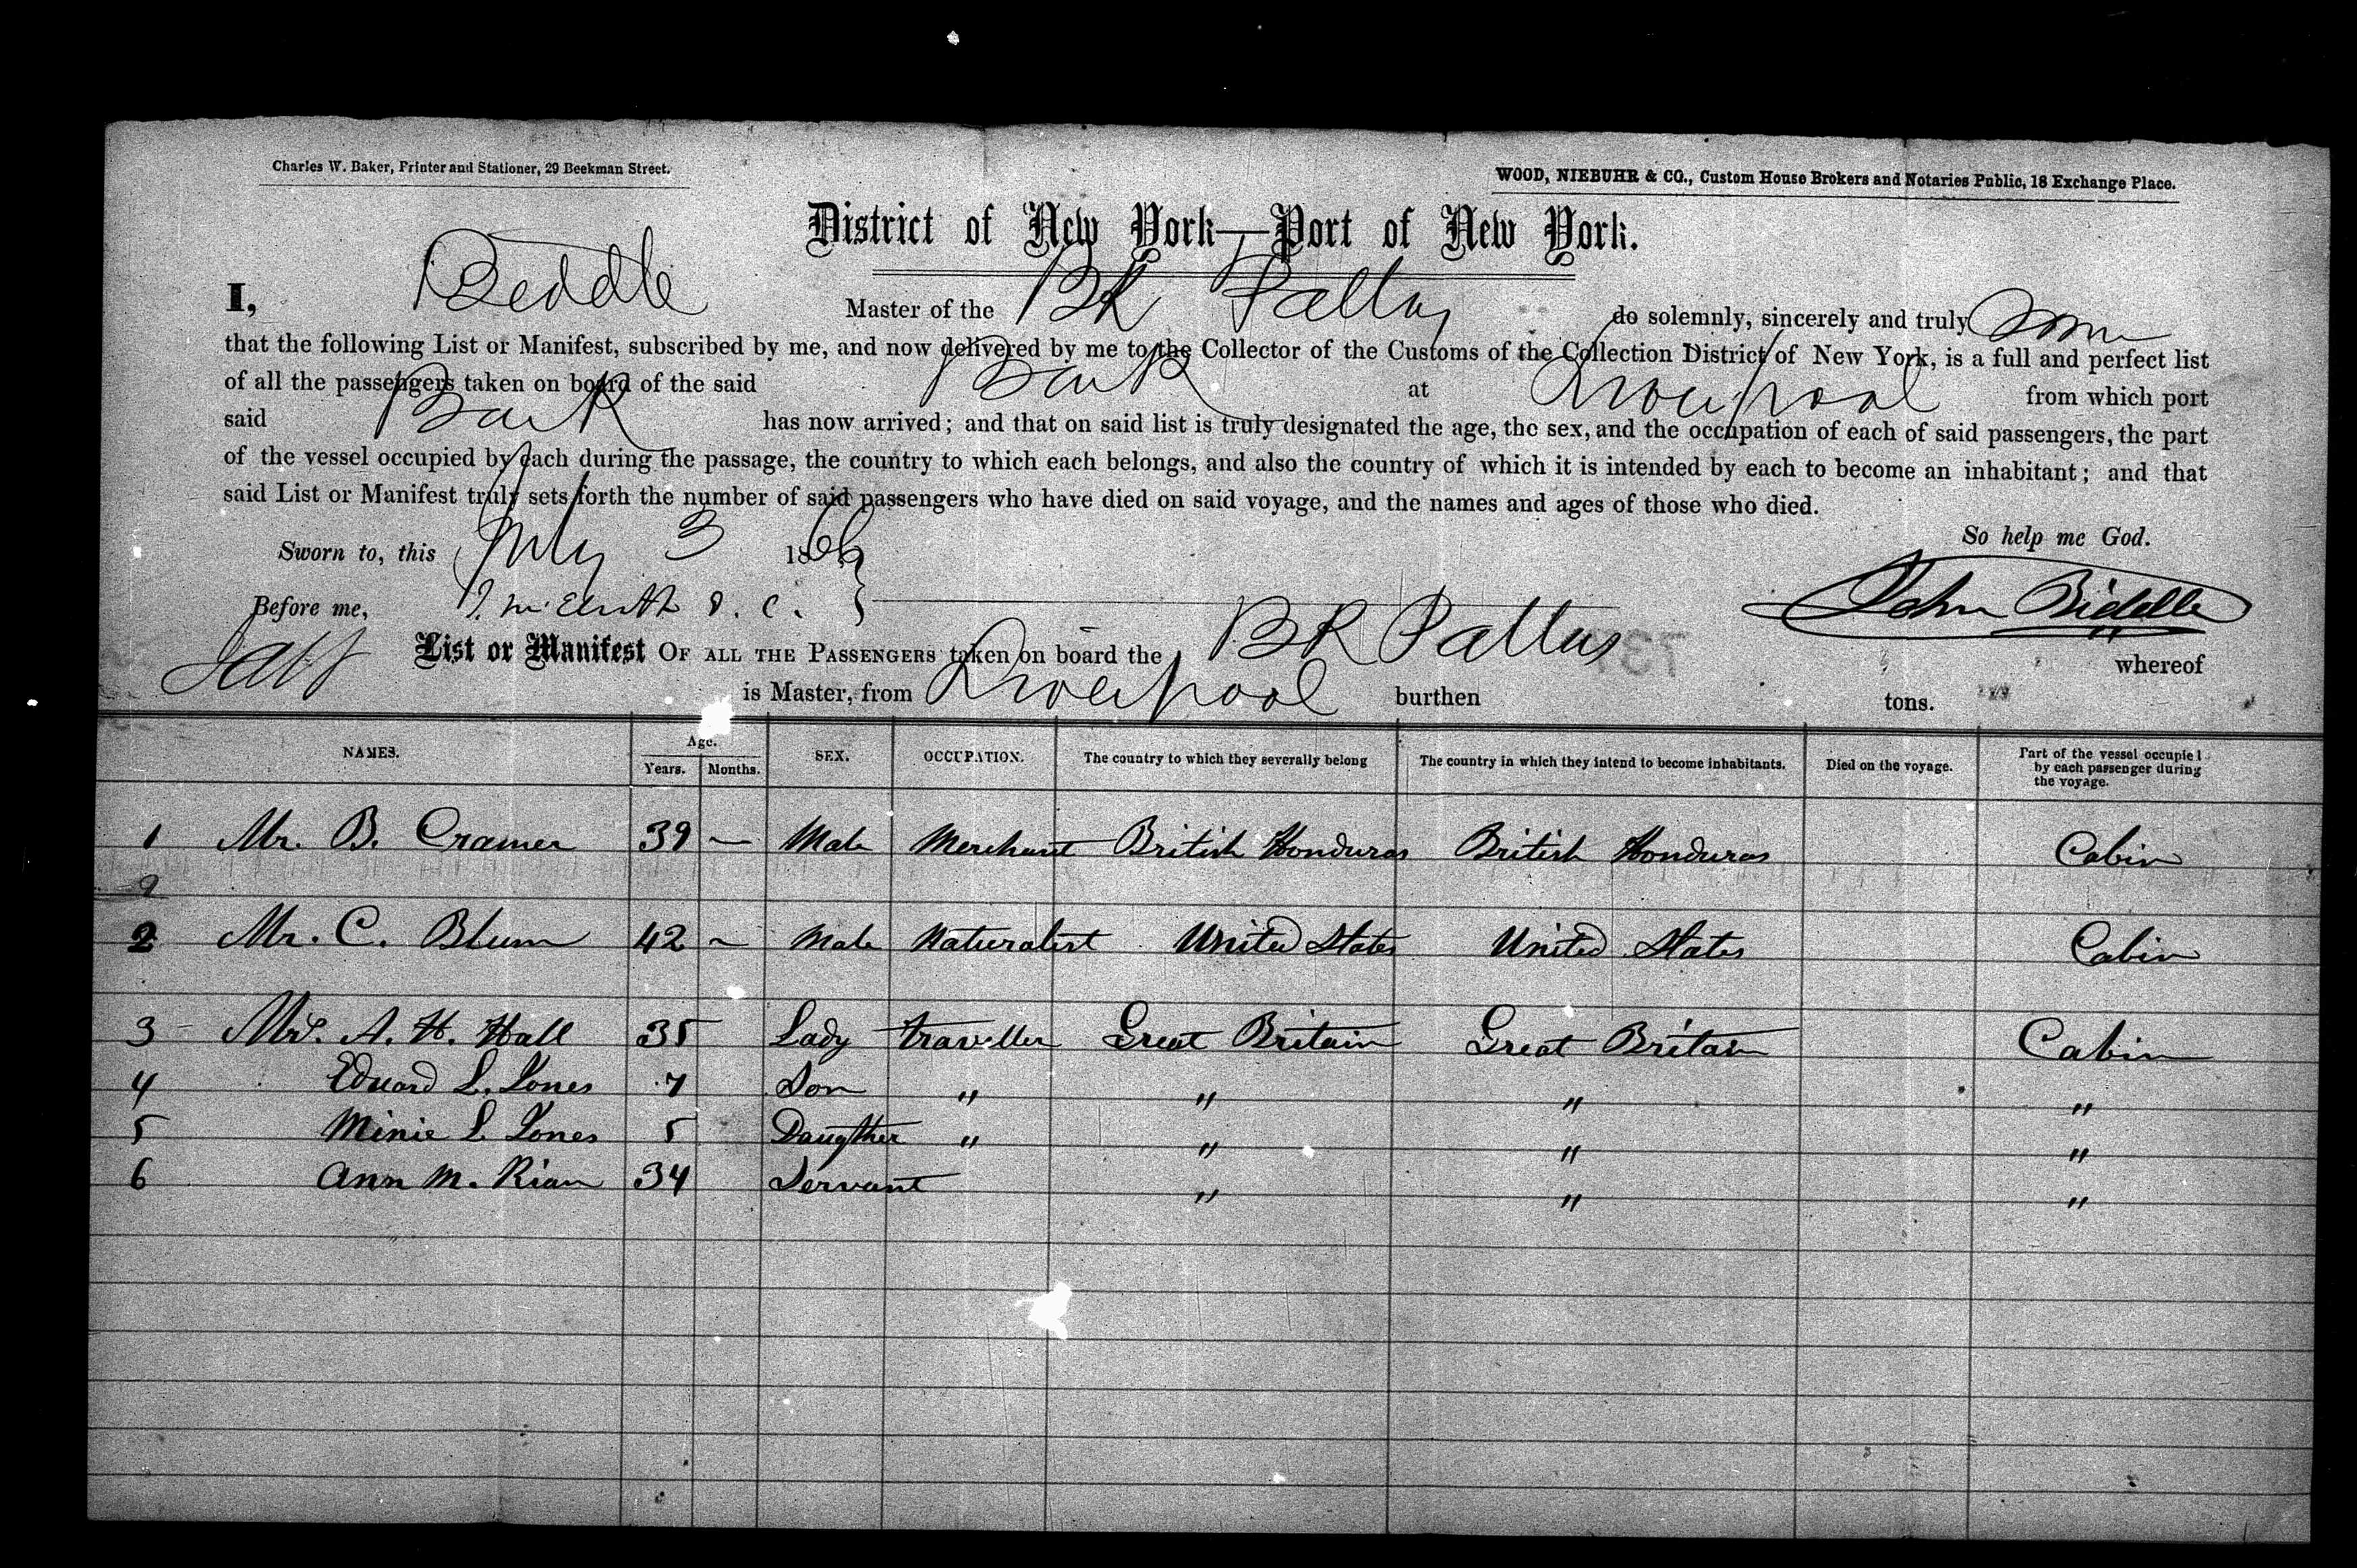 Charles W. Baker, Printer and Stationer, 29 Beekman Street.
WOOD, NIEBUHR & CO., Custom House Brokers and Notaries Public, 18 Exchange Place.
District of New York—Port of New York.
I, Beddle Master of the BK Pallas do solemnly, sincerely and truly
that the following List or Manifest, subscribed by me, and now delivered by me to the Collector of the Customs of the Collection District of New York, is a full and perfect list
of all the passengers taken on board of the said Bark at Liverpool from which port
said Bark has now arrived; and that on said list is truly designated the age, the sex, and the occupation of each of said passengers, the part
of the vessel occupied by each during the passage, the country to which each belongs, and also the country of which it is intended by each to become an inhabitant; and that
said List or Manifest truly sets forth the number of said passengers who have died on said voyage, and the names and ages of those who died.
So help me God.
Sworn to, this July 3 186
Before me, D. C.
John Biddle
List or Manifest OF ALL THE PASSENGERS taken on board the BK Pallas whereof
is Master, from Liverpool burthen tons.
NAMES. Age. Years. Months. SEX. OCCUPATION. The country to which they severally belong The country in which they intend to become inhabitants. Died on the voyage. Part of the vessel occupied by each passenger during the voyage.
1 Mr. B. Cramer 39 — Male Merchant British Honduras British Honduras Cabin
2
2 Mr. C. Blum 42 — Male Naturalist United States United States Cabin
3 Mrs. A. H. Hall 35 Lady traveller Great Britain Great Britain Cabin
4 Eduard L. Jones 7 Son " " " "
5 Minie L. Jones 5 Daugther " " " "
6 Ann M. Rian 34 Servant " " "